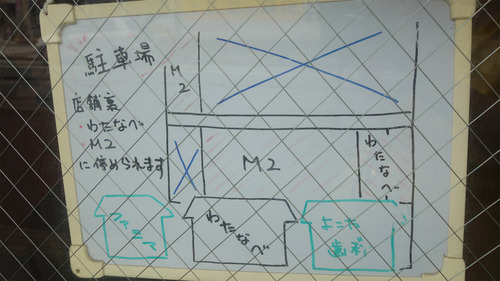 駐車場
店舗裏
・わたなべ
・M2
に停められます
M2
M2
わたなべ
わたなべ
よこた
歯科